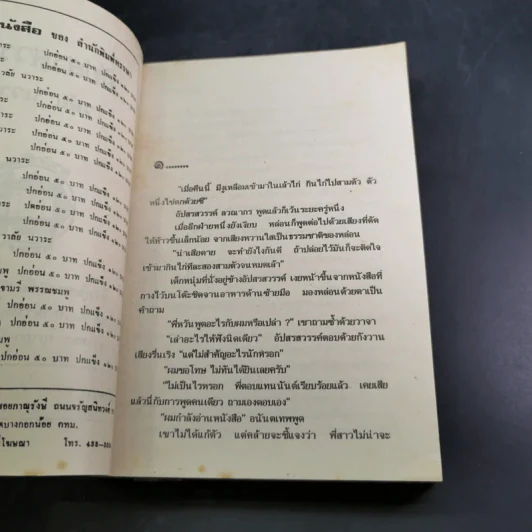 หนังสือ ของ สำนักพิมพ์
ปกอ่อน ๕๐ บาท ปกแข็ง
วาลัย นวาระ
ปกอ่อน ๕๐ บาท ปกแข็ง
ปกอ่อน ๕๐ บาท ปกแข็ง
ปกอ่อน ๕๐ บาท ปกแข็ง
นวาระ
ปกอ่อน ๕๐ บาท ปกแข็ง
ปกอ่อน ๕๐ บาท ปกแข็ง
วาลัย นวาระ
ปกอ่อน ๕๐ บาท ปกแข็ง
ปกอ่อน ๕๐ บาท ปกแข็ง
จามรี พรรณชมพู
ปกอ่อน ๕๐ บาท ปกแข็ง
ปกอ่อน ๕๐ บาท ปกแข็ง
ถนนจรัญสนิทวงศ์
บางกอกน้อย กทม.
โฆษณา โทร.
๑........
"เมื่อคืนนี้ มีงูเหลือมเข้ามาในเล้าไก่ กินไก่ไปสามตัว ตัว
หนึ่งไข่ดกด้วยซี"
อัปสรสวรรค์ สวณากร พูดแล้วก็เว้นระยะครู่หนึ่ง
เมื่ออีกฝ่ายหนึ่งยังเงียบ หล่อนก็พูดต่อไปด้วยเสียงที่ดัด
ให้ห้าวขึ้นเล็กน้อย จากเสียงหวานใสเป็นธรรมชาติของหล่อน
"น่าเสียดาย จะทำยังไงกันดี ถ้าปล่อยไว้มันก็จะติดใจ
เข้ามากินไก่ทีละสองสามตัวจนหมดเล้า"
เด็กหนุ่มที่นั่งอยู่ข้างอัปสรสวรรค์ เงยหน้าขึ้นจากหนังสือที่
กางไว้บนโต๊ะชิดจานอาหารด้านซ้ายมือ มองหล่อนด้วยตาเป็น
คำถาม
"พี่หวันพูดอะไรกับผมหรือเปล่า ?" เขาถามซ้ำด้วยวาจา
"เล่าอะไรให้ฟังนิดเดียว" อัปสรสวรรค์ตอบด้วยกังวาน
เสียงรื่นเริง "แต่ไม่สำคัญอะไรนักหรอก"
"ผมขอโทษ ไม่ทันได้ยินเลยครับ"
"ไม่เป็นไรหรอก พี่ตอบแทนนันต์เรียบร้อยแล้ว เคยเสีย
แล้วนี่กับการพูดคนเดียว ถามเองตอบเอง"
"ผมกำลังอ่านหนังสือ" อนันตเทพพูด
เขาไม่ได้แก้ตัว แต่คล้ายจะชี้แจงว่า พี่สาวไม่น่าจะ